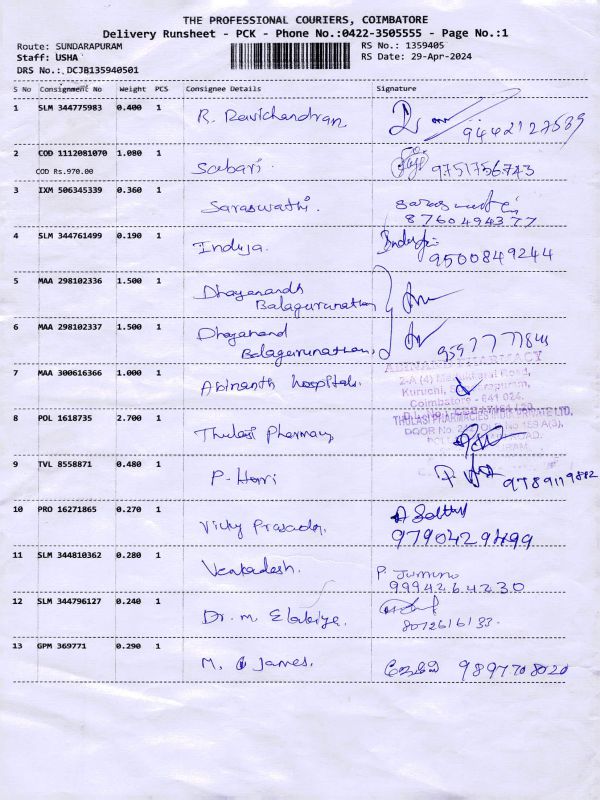 THE PROFESSIONAL COURIERS, COIMBATORE
Delivery Runsheet - PCK - Phone No.:0422-3505555 - Page No.:1
Route: SUNDARAPURAM RS No.: 1359405
Staff: USHA RS Date: 29-Apr-2024
DRS No.: DCJB135940501
S No Consignment No Weight PCS Consignee Details Signature
1 SLM 344775983 0.400 1 R. Ravichandran 9442127589
2 COD 1112081070 1.080 1 Sabari. 9751756743
COD Rs.970.00
3 IXM 506345339 0.360 1 Saraswathi.
8760494377
4 SLM 344761499 0.190 1 Induja. 9500849244
5 MAA 298102336 1.500 1 Dhayanandh
Balagurunathan
6 MAA 298102337 1.500 1 Dhayanand
Balagurunathan,
7 MAA 300616366 1.000 1 Abinanth hospitals.
Coimbatore - 641 024.
8 POL 1618735 2.700 1 Thulasi Pharmacy
THULASI PHARMACIES PRIVATE LTD,
9 TVL 8558871 0.480 1 P. Hari
10 PRO 16271865 0.270 1 Vicky Prasad
9790429499
11 SLM 344810362 0.280 1 Venkadesh. P.
9994264230
12 SLM 344796127 0.240 1 Dr. M. Elakiya.
8072616133.
13 GPM 369771 0.290 1 M. James. 9897708020